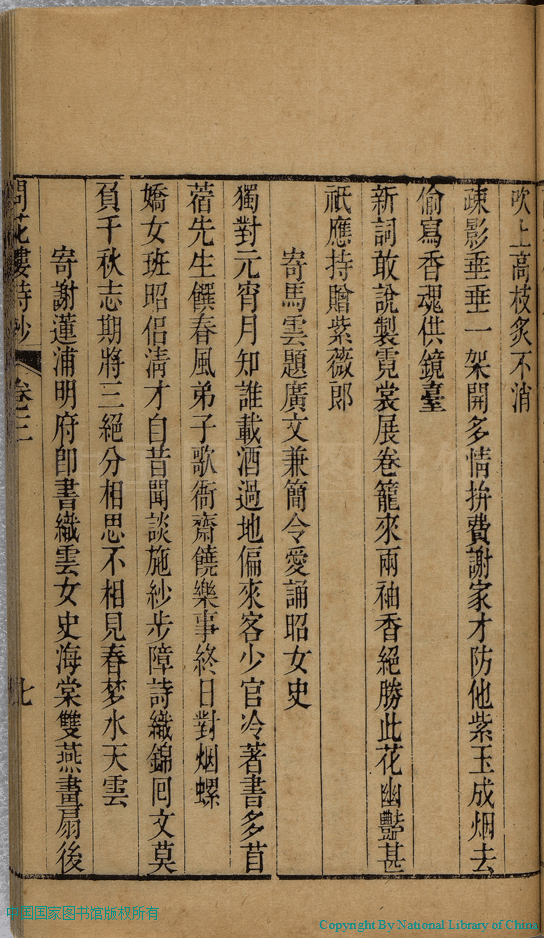 吹上高枝炙不消
疎影垂垂一架開多情拚費謝家才防他紫玉成烟去
偷寫香魂供鏡臺
新詞敢說製霓裳展卷籠來兩袖香絕勝此花幽豔甚
祇應持贈紫薇郎
寄馬雲題廣文兼簡令愛誦昭女史
獨對元宵月知誰載酒過地偏來客少官冷著書多苜
蓿先生饌春風弟子歌衙齋饒樂事終日對烟螺
嬌女班昭侣清才自昔聞談施紗步障詩織錦囘文莫
負千秋志期將三絕分相思不相見春梦水天雲
寄謝蓮浦明府卽書織雲女史海棠雙燕畫扇後
問花樓詩鈔 卷三 七
中国国家图书馆版权所有
Copyright By National Library of China